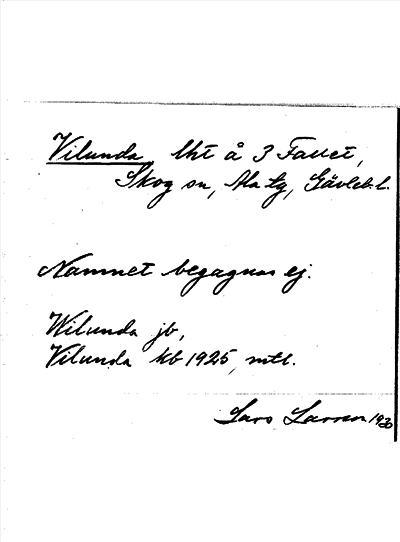 Vilunda, lht å 3 Fallet,
Skog sn, Ala tg, Gävleb. l.
Namnet begagnas ej.
Wilunda jb,
Vilunda kb 1925, mtl.
Lars Larsson 1930